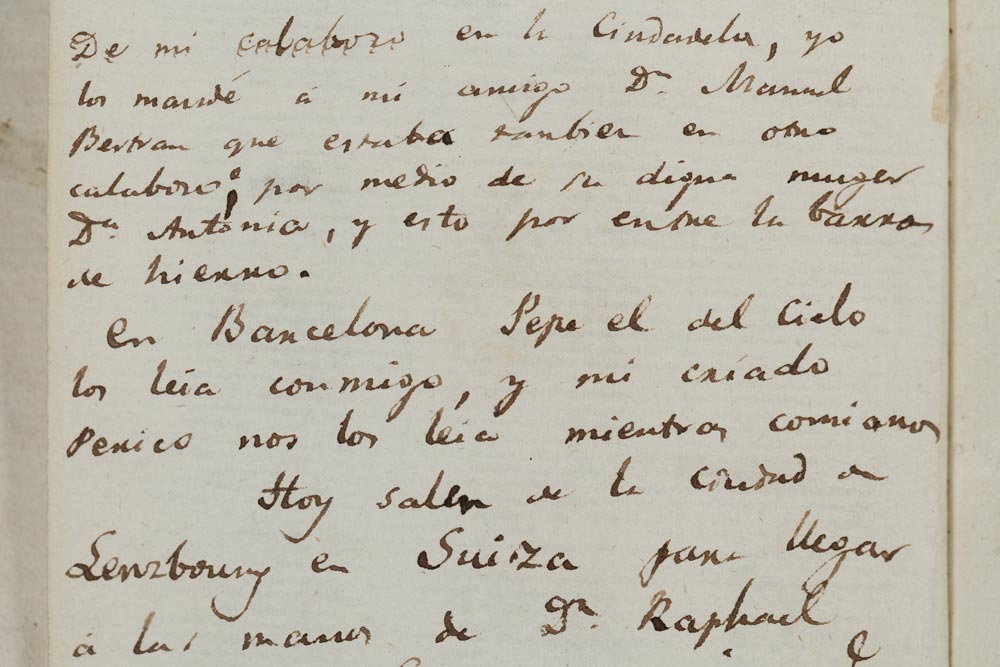 De mi calabozo en la Ciudadela, yo
los mandé á mi amigo Dn. Manuel
Bertran que estaba tanbien en otro
calabozo, por medio de su digna muger
Da. Antonia, y esto por entre la barras
de hierro.
En Barcelona Pepe el del Cielo
los leia conmigo, y mi criado
Perico nos los leia mientras comiamos
Hoy salen de la ciudad de
Lenzbourg en Suiza para llegar
á las manos de Dn. Raphael